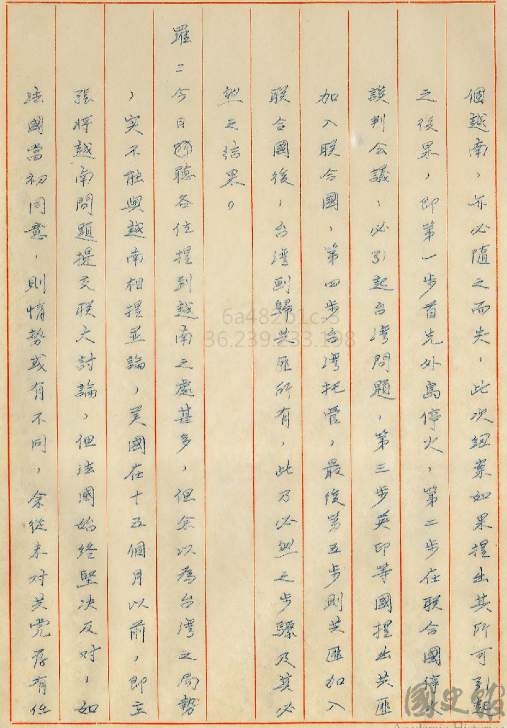 個越南，亦必隨之而失，此次紐案如果提出其所可引起
之後果，即第一步首先外島停火，第二步在聯合國停火
談判會議，必引起台灣問題，第三步英印等國提出共匪
加入聯合國，第四步台灣托管，最後第五步則共匪加入
聯合國後，台灣則歸共匪所有，此乃必然之步驟及其必
然之結果。
羅：今日所聽各位提到越南之處甚多，但余以為台灣之局勢
，實不能與越南相提並論，美國在十五個月以前，即主
張將越南問題提交聯大討論，但法國始終堅決反對，如
法國當初同意，則情勢或有不同，余從未對共黨存有任
6a482b1c-3
36.239.233.198
國史館
Academia Historica